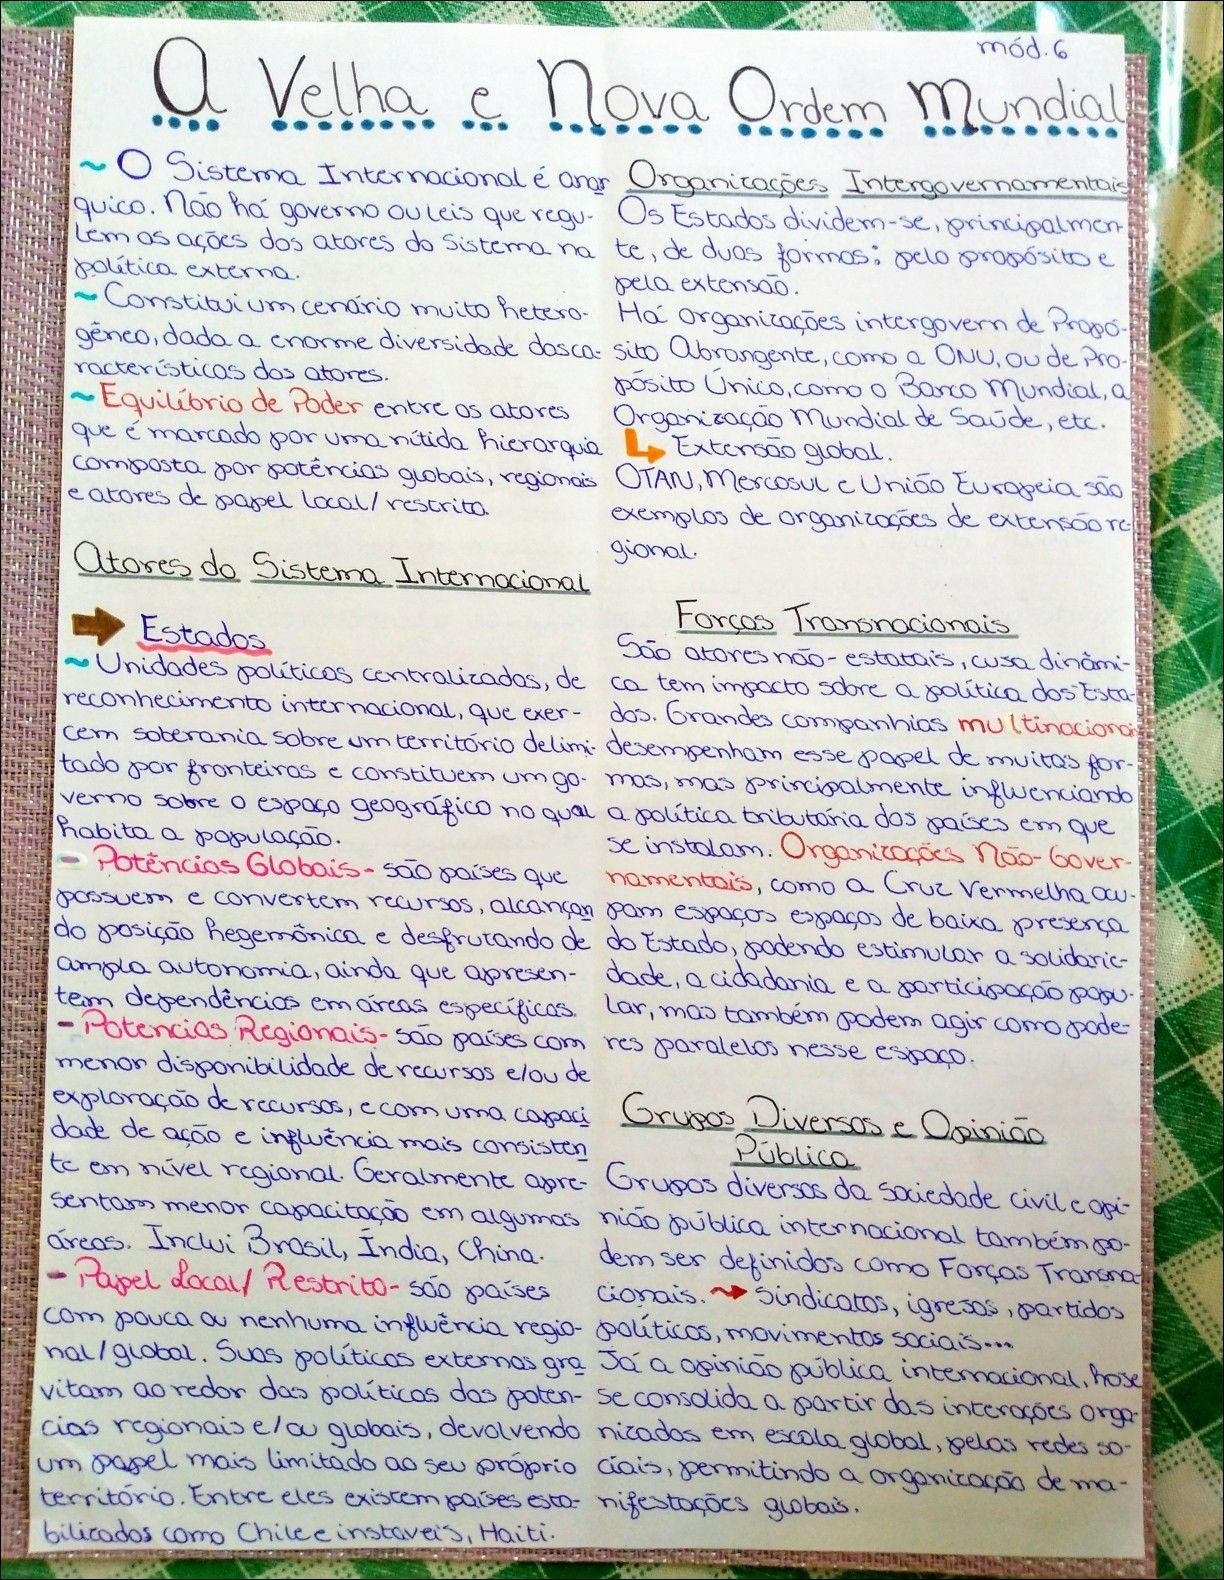 mód. 6
A Velha e Nova Ordem Mundial
~ O Sistema Internacional é anar
quico. Não há governo ou leis que regu-
lem as ações dos atores do sistema na
política externa.
~ Constitui um cenário muito hetero-
gêneo, dada a enorme diversidade das ca-
racterísticas dos atores.
~ Equilíbrio de Poder entre os atores
que é marcado por uma nítida hierarquia
composta por potências globais, regionais
e atores de papel local/restrito.
Atores do Sistema Internacional
Estados
~ Unidades políticas centralizadas, de
reconhecimento internacional, que exer-
cem soberania sobre um território delimi-
tado por fronteiras e constituem um go-
verno sobre o espaço geográfico no qual
habita a população.
- Potências Globais - são países que
possuem e convertem recursos, alcançan
do posição hegemônica e desfrutando de
ampla autonomia, ainda que apresen-
tem dependências em áreas específicas.
- Potencias Regionais - são países com
menor disponibilidade de recursos e/ou de
exploração de recursos, e com uma capaci
dade de ação e influência mais consisten
te em nível regional. Geralmente apre-
sentam menor capacitação em algumas
áreas. Inclui Brasil, Índia, China.
- Papel Local/Restrito - são países
com pouca ou nenhuma influência regio-
nal/global. Suas políticas externas gra
vitam ao redor das políticas das poten-
cias regionais e/ou globais, devolvendo
um papel mais limitado ao seu próprio
território. Entre eles existem países esta-
bilizados como Chile e instaveis, Haiti.
Organizações Intergovernamentais
Os Estados dividem-se, principalmen-
te, de duas formas: pelo propósito e
pela extensão.
Há organizações intergovern de Propó-
sito Abrangente, como a ONU, ou de Pro-
pósito Único, como o Banco Mundial, a
Organização Mundial de Saúde, etc.
Extensão global.
OTAN, Mercosul e União Europeia são
exemplos de organizações de extensão re-
gional.
Forças Transnacionais
São atores não-estatais, cusa dinâmi-
ca tem impacto sobre a política dos Esta-
dos. Grandes companhias multinacionai
desempenham esse papel de muitas for-
mas, mas principalmente influenciando
a política tributária dos países em que
se instalam. Organizações Não-Gover-
namentais, como a Cruz Vermelha ocu-
pam espaços espaços de baixa presença
do Estado, podendo estimular a solidarie-
dade, a cidadania e a participação popu-
lar, mas também podem agir como pode-
res paralelos nesse espaço.
Grupos Diversos e Opinião
Pública
Grupos diversos da sociedade civil e opi-
nião pública internacional também po-
dem ser definidos como Forças Transna-
cionais. Sindicatos, igresas, partidos
políticos, movimentos sociais...
Já a opinião pública internacional, hose
se consolida a partir das interações orga-
nizadas em escala global, pelas redes so-
ciais, permitindo a organização de ma-
nifestações globais.